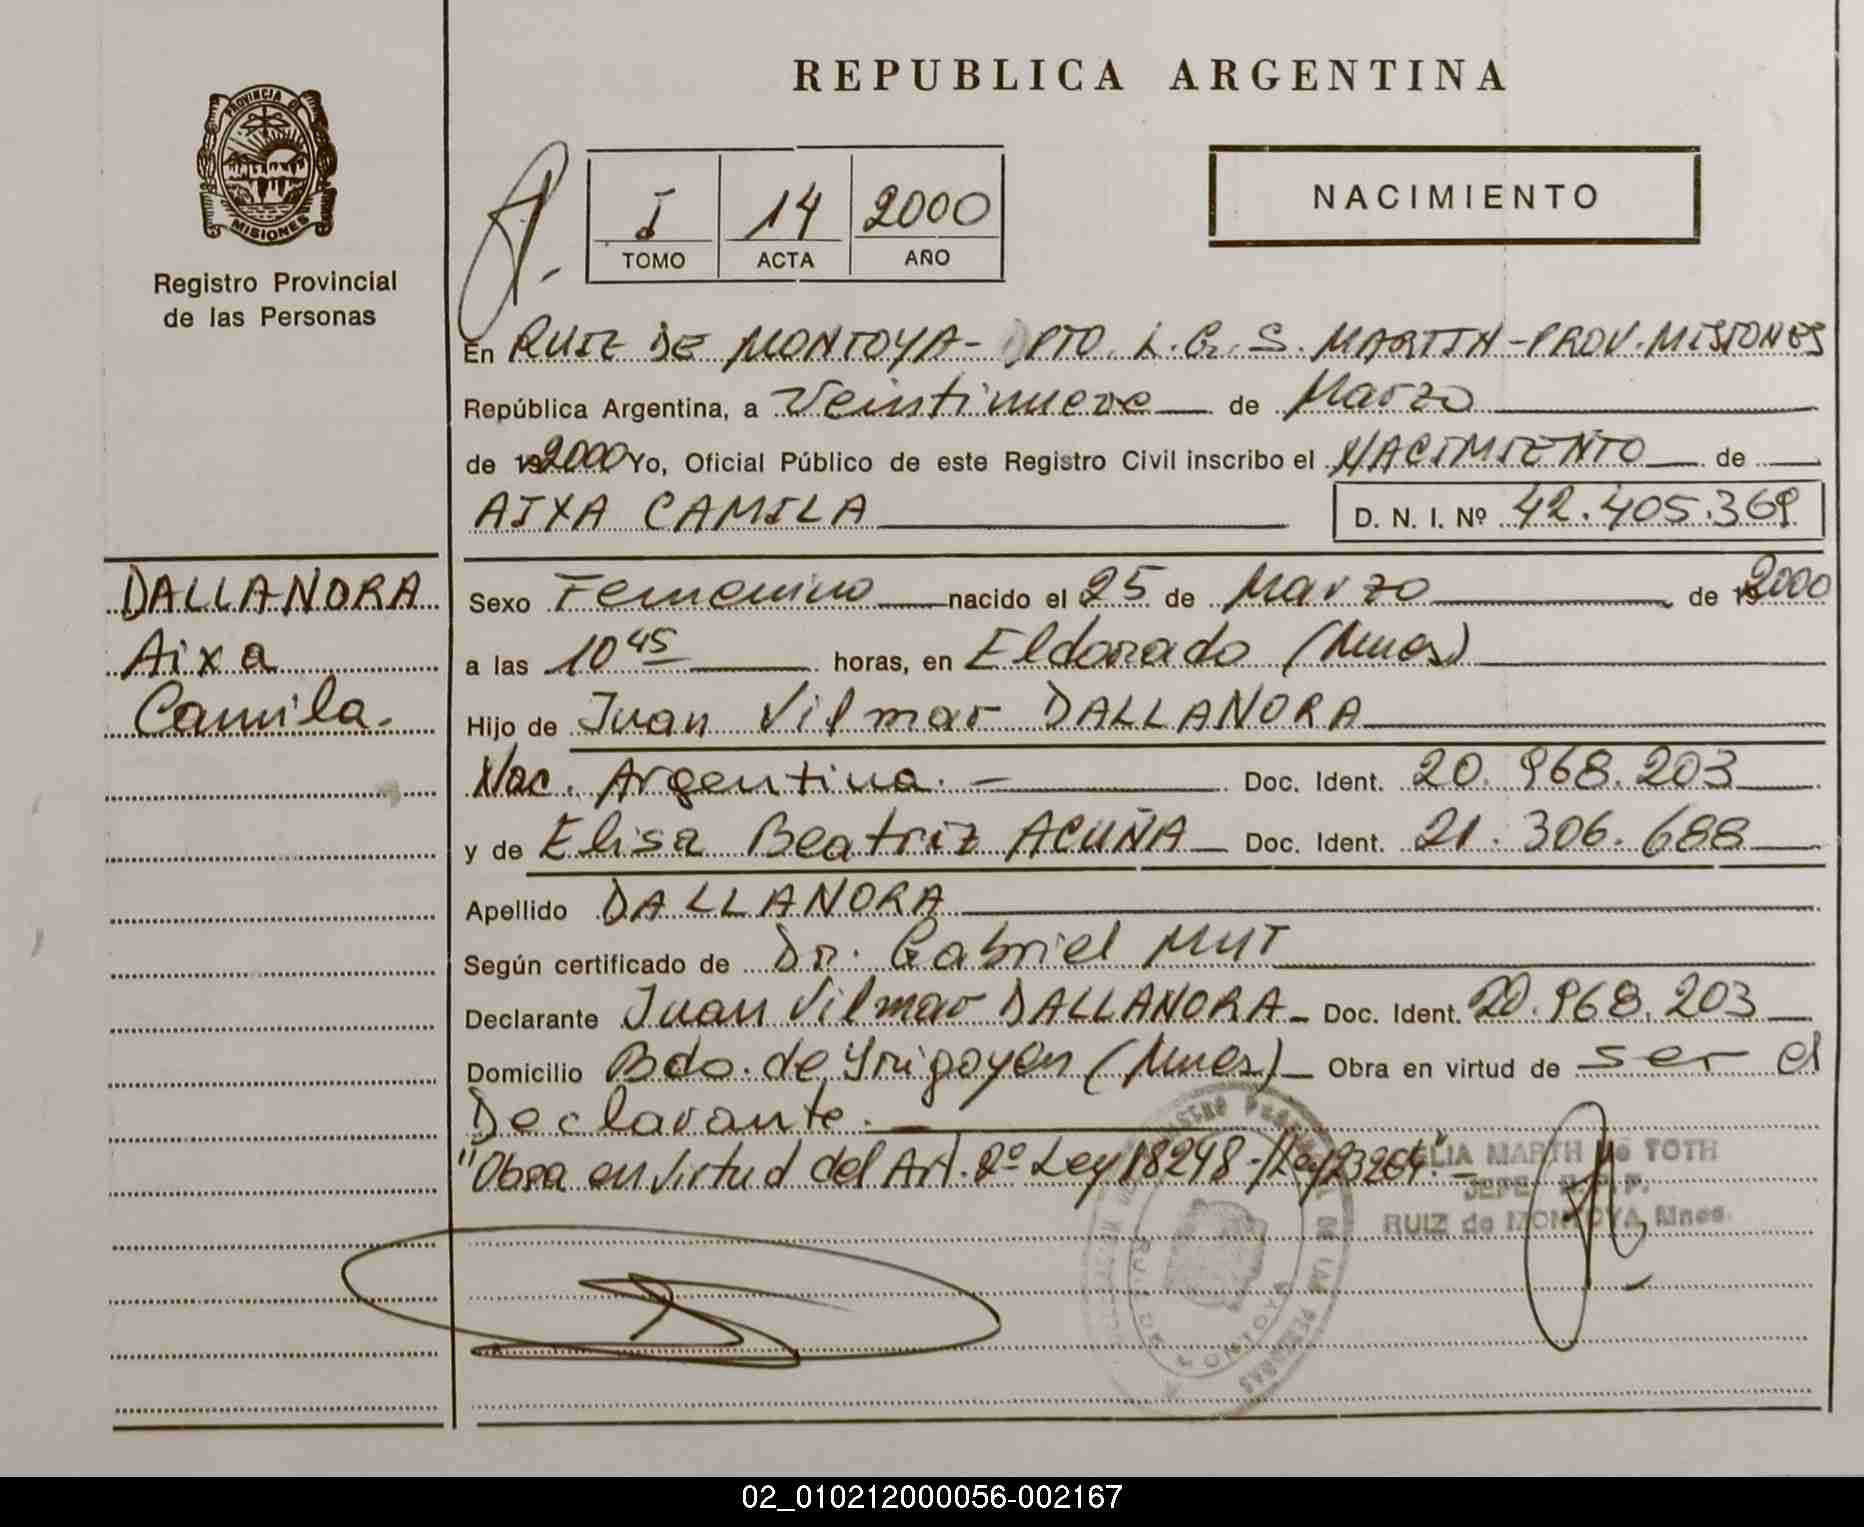 REPUBLICA ARGENTINA
PROVINCIA DE
MISIONES
Registro Provincial
de las Personas
I 14 2000
TOMO ACTA AÑO
NACIMIENTO
En RUIZ DE MONTOYA - DPTO. L. G. S. MARTIN - PROV. MISIONES
República Argentina, a Veintinueve de Marzo
de 19 2000 Yo, Oficial Público de este Registro Civil inscribo el NACIMIENTO de
AIXA CAMILA D. N. I. Nº 42.405.369
DALLANORA
Aixa
Camila.
Sexo Femenino nacido el 25 de Marzo de 19 2000
a las 10 45 horas, en Eldorado (Mnes)
Hijo de Juan Vilmar DALLANORA
Nac. Argentina. - Doc. Ident. 20.968.203
y de Elisa Beatriz ACUÑA Doc. Ident. 21.306.688
Apellido DALLANORA
Según certificado de Dr. Gabriel MUT
Declarante Juan Vilmar DALLANORA - Doc. Ident. 20.968.203
Domicilio Bdo. de Yrigoyen (Mnes) - Obra en virtud de ser el
Declarante. -
"Obra en virtud del Art. 2º Ley 18248 - / Ley 23264". -
LIA MARTH de TOTH
JEFE R.P.P.
RUIZ de MONTOYA Mnes.
02_010212000056-002167